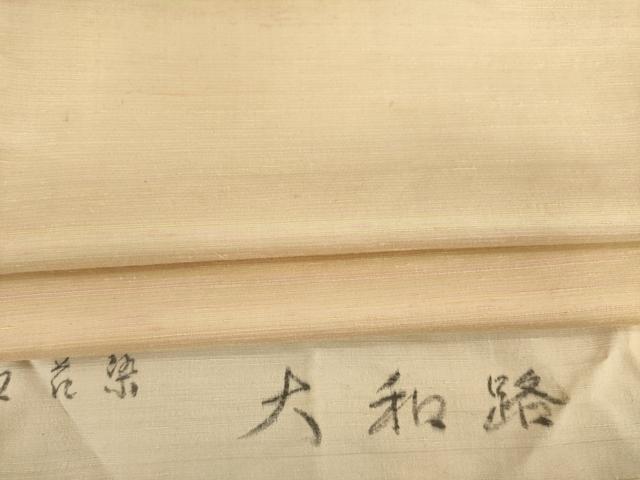 花染
大和路